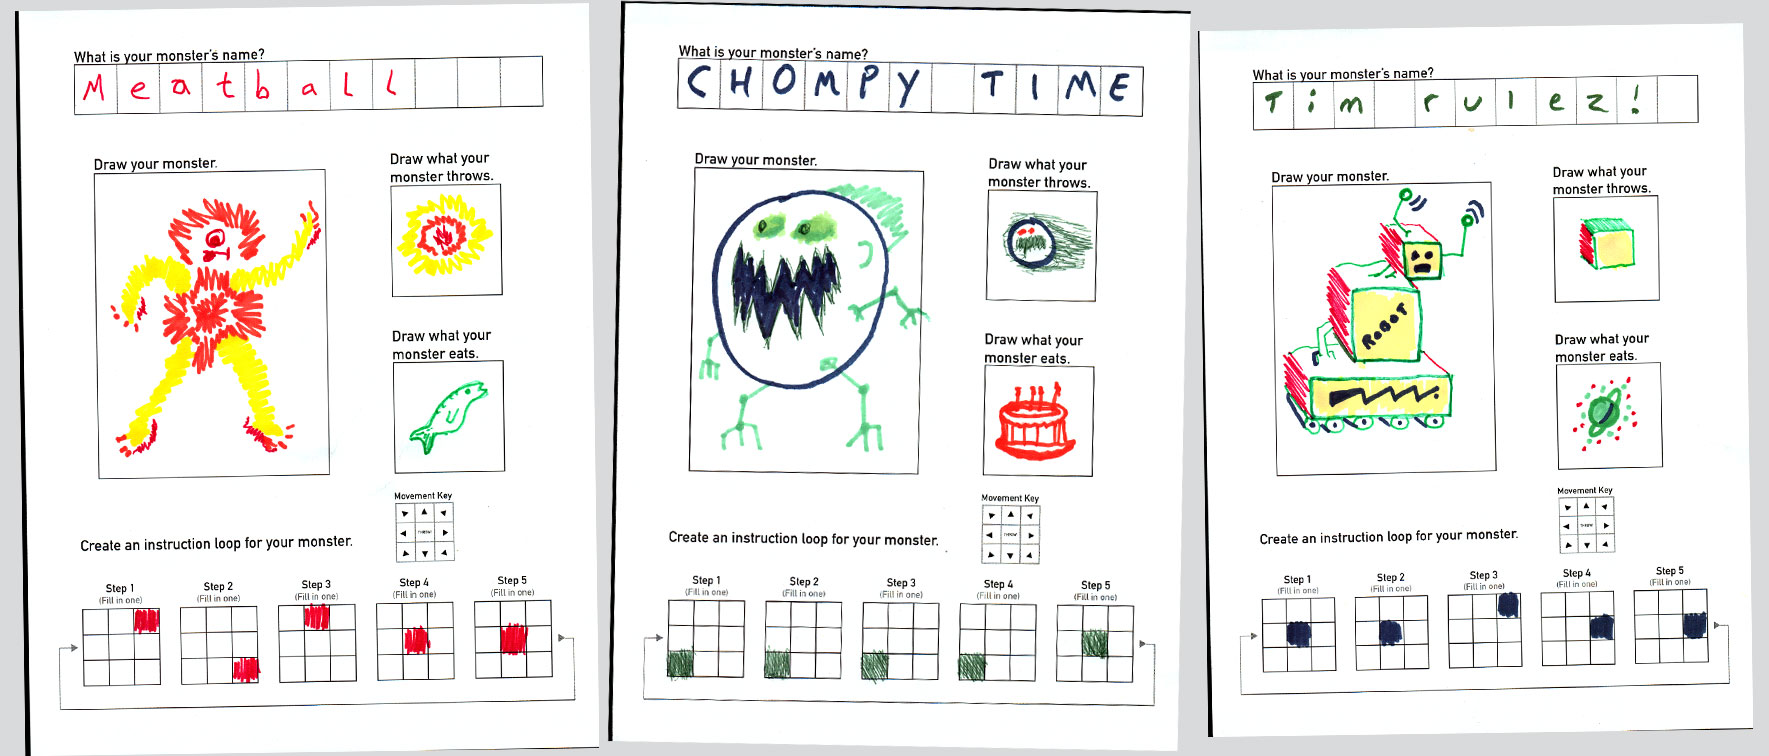 What is your monster's name?
Meatball
Draw your monster.
Draw what your
monster throws.
Draw what your
monster eats.
Movement Key
THROW
Create an instruction loop for your monster.
Step 1
(Fill in one)
Step 2
(Fill in one)
Step 3
(Fill in one)
Step 4
(Fill in one)
Step 5
(Fill in one)
What is your monster's name?
CHOMPY TIME
Draw your monster.
Draw what your
monster throws.
Draw what your
monster eats.
Movement Key
THROW
Create an instruction loop for your monster.
Step 1
(Fill in one)
Step 2
(Fill in one)
Step 3
(Fill in one)
Step 4
(Fill in one)
Step 5
(Fill in one)
What is your monster's name?
Tim rulez!
Draw your monster.
ROBOT
Draw what your
monster throws.
Draw what your
monster eats.
Movement Key
THROW
Create an instruction loop for your monster.
Step 1
(Fill in one)
Step 2
(Fill in one)
Step 3
(Fill in one)
Step 4
(Fill in one)
Step 5
(Fill in one)